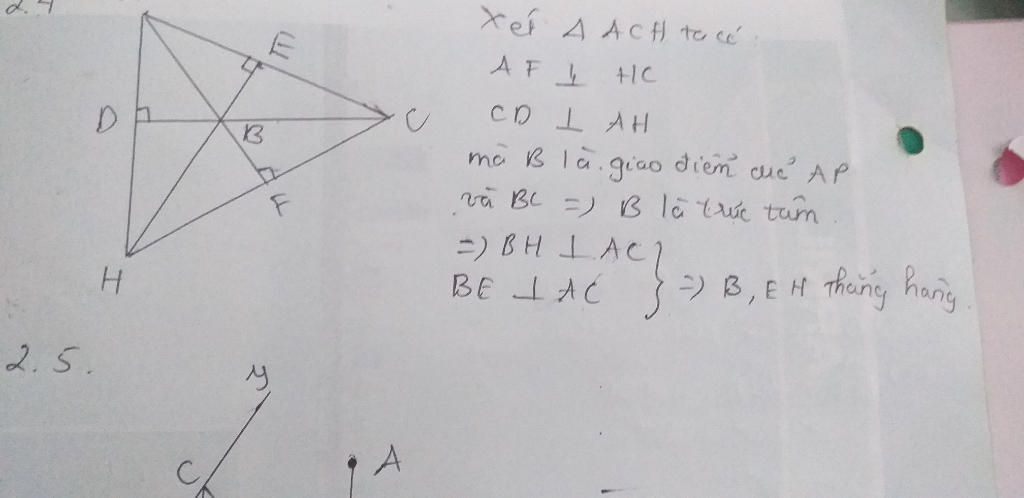 2.4
E
D
B
C
F
H
Xét Δ ACH ta có:
AF ⊥ HC
CD ⊥ AH
mà B là giao điểm của AF
và BC => B là trực tâm.
=> BH ⊥ AC
BE ⊥ AC } => B, E H thẳng hàng.
2.5.
y
C
A